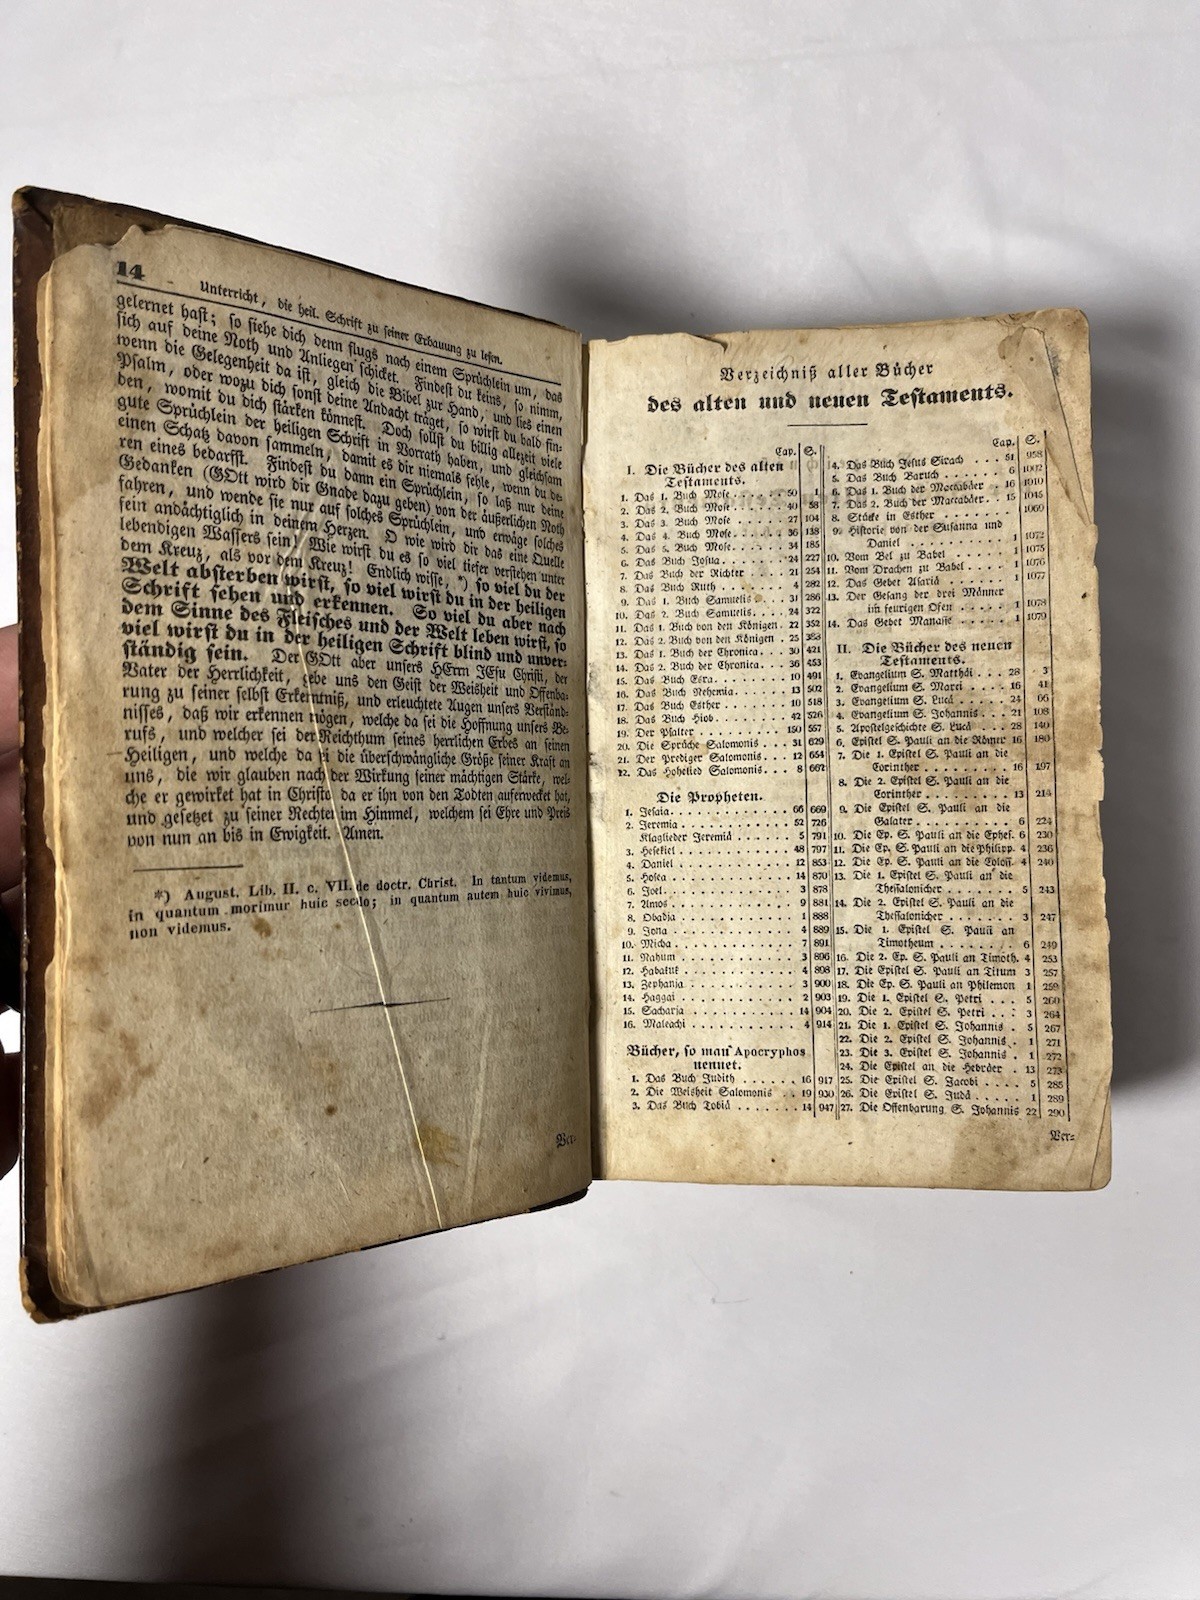 14
Unterricht, die heil. Schrift zu seiner Erbauung zu lesen.
gelernet hast; so siehe dich denn flugs nach einem Sprüchlein um, das
sich auf deine Noth und Anliegen schicket. Findest du keins, so nimm,
wenn die Gelegenheit da ist, gleich die Bibel zur Hand, und lies einen
Psalm, oder wozu dich sonst deine Andacht träget, so wirst du bald fin-
den, womit du dich stärken könnest. Doch sollst du billig allezeit viele
gute Sprüchlein der heiligen Schrift in Vorrath haben, und gleichsam
einen Schatz davon sammeln, damit es dir niemals fehle, wenn du de-
ren eines bedarfst. Findest du dann ein Sprüchlein, so laß nur deine
Gedanken (GOtt wird dir Gnade dazu geben) von der äußerlichen Noth
fahren, und wende sie nur auf solches Sprüchlein, und erwäge solches
fein andächtiglich in deinem Herzen. O wie wird dir das eine Quelle
lebendigen Wassers sein! Wie wirst du es so viel tiefer verstehen unter
dem Kreuz, als vor dem Kreuz! Endlich wisse, *) so viel du der
Welt absterben wirst, so viel wirst du in der heiligen
Schrift sehen und erkennen. So viel du aber nach
dem Sinne des Fleisches und der Welt leben wirst, so
viel wirst du in der heiligen Schrift blind und unver-
ständig sein. Der GOtt aber unsers HErrn JEsu Christi, der
Vater der Herrlichkeit, gebe uns den Geist der Weisheit und Offenba-
rung zu seiner selbst Erkenntniß, und erleuchtete Augen unsers Verständ-
nisses, daß wir erkennen mögen, welche da sei die Hoffnung unsers Be-
rufs, und welcher sei der Reichthum seines herrlichen Erbes an seinen
Heiligen, und welche da sei die überschwängliche Größe seiner Kraft an
uns, die wir glauben nach der Wirkung seiner mächtigen Stärke, wel-
che er gewirket hat in Christo da er ihn von den Todten auferwecket hat,
und gesetzet zu seiner Rechten im Himmel, welchem sei Ehre und Preis
von nun an bis in Ewigkeit. Amen.
*) August. Lib. II. c. VII. de doctr. Christ. In tantum videmus,
in quantum morimur huic seculo; in quantum autem huic vivimus,
non videmus.
Ver-
Verzeichniß aller Bücher
des alten und neuen Testaments.
Cap. S.
I. Die Bücher des alten
Testaments.
1. Das 1. Buch Mose 50 1
2. Das 2. Buch Mose 40 58
3. Das 3. Buch Mose 27 104
4. Das 4. Buch Mose 36 138
5. Das 5. Buch Mose 34 185
6. Das Buch Josua 24 227
7. Das Buch der Richter 21 254
8. Das Buch Ruth 4 282
9. Das 1. Buch Samuelis 31 286
10. Das 2. Buch Samuelis 24 322
11. Das 1. Buch von den Königen 22 352
12. Das 2. Buch von den Königen 25 388
13. Das 1. Buch der Chronica 30 421
14. Das 2. Buch der Chronica 36 453
15. Das Buch Esra 10 491
16. Das Buch Nehemia 13 502
17. Das Buch Esther 10 518
18. Das Buch Hiob 42 526
19. Der Psalter 150 557
20. Die Sprüche Salomonis 31 629
21. Der Prediger Salomonis 12 654
22. Das Hohelied Salomonis 8 662
Die Propheten.
1. Jesaia 66 669
2. Jeremia 52 726
Klaglieder Jeremiä 5 791
3. Hesekiel 48 797
4. Daniel 12 853
5. Hosea 14 870
6. Joel 3 878
7. Amos 9 881
8. Obadja 1 888
9. Jona 4 889
10. Micha 7 891
11. Nahum 3 896
12. Habakuk 4 898
13. Zephanja 3 900
14. Haggai 2 903
15. Sacharja 14 904
16. Maleachi 4 914
Bücher, so man Apocryphos
nennet.
1. Das Buch Judith 16 917
2. Die Weisheit Salomonis 19 930
3. Das Buch Tobiä 14 947
Cap. S.
4. Das Buch Jesus Sirach 51 958
5. Das Buch Baruch 6 1002
6. Das 1. Buch der Maccabäer 16 1010
7. Das 2. Buch der Maccabäer 15 1045
8. Stücke in Esther 1069
9. Historie von der Susanna und
Daniel 1 1072
10. Vom Bel zu Babel 1 1075
11. Vom Drachen zu Babel 1 1076
12. Das Gebet Asariä 1 1077
13. Der Gesang der drei Männer
im feurigen Ofen 1 1078
14. Das Gebet Manasse 1 1079
II. Die Bücher des neuen
Testaments.
1. Evangelium S. Matthäi 28 3
2. Evangelium S. Marci 16 41
3. Evangelium S. Lucä 24 66
4. Evangelium S. Johannis 21 108
5. Apostelgeschichte S. Lucä 28 140
6. Epistel S. Pauli an die Römer 16 180
7. Die 1. Epistel S. Pauli an die
Corinther 16 197
8. Die 2. Epistel S. Pauli an die
Corinther 13 214
9. Die Epistel S. Pauli an die
Galater 6 224
10. Die Ep. S. Pauli an die Ephes. 6 230
11. Die Ep. S. Pauli an die Philipp. 4 236
12. Die Ep. S. Pauli an die Coloss. 4 240
13. Die 1. Epistel S. Pauli an die
Thessalonicher 5 243
14. Die 2. Epistel S. Pauli an die
Thessalonicher 3 247
15. Die 1. Epistel S. Pauli an
Timotheum 6 249
16. Die 2. Ep. S. Pauli an Timoth. 4 253
17. Die Epistel S. Pauli an Titum 3 257
18. Die Ep. S. Pauli an Philemon 1 259
19. Die 1. Epistel S. Petri 5 260
20. Die 2. Epistel S. Petri 3 264
21. Die 1. Epistel S. Johannis 5 267
22. Die 2. Epistel S. Johannis 1 271
23. Die 3. Epistel S. Johannis 1 272
24. Die Epistel an die Hebräer 13 273
25. Die Epistel S. Jacobi 5 285
26. Die Epistel S. Judä 1 289
27. Die Offenbarung S. Johannis 22 290
Ver-